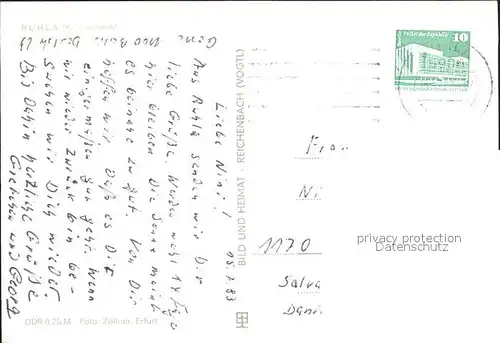 RUHLA
Liebe Nini!
Aus Ruhla senden wir Dir
liebe Grüße. Werden wohl 14 Tage
hier bleiben. Die Sonne meint
es beinahe zu gut. Von Dir
hoffen wir, daß es Dir
einigermaßen gut geht. Wenn
wir wieder zurück sind be-
suchen wir Dich wieder.
Bis dahin herzliche Grüße
Gretchen und Georg
15. 83
BILD UND HEIMAT · REICHENBACH (VOGTL)
DDR 0,25 M Foto: Zöllner, Erfurt
Palast der Republik
10
Frau
Ni
1170
Salva
privacy protection
Datenschutz